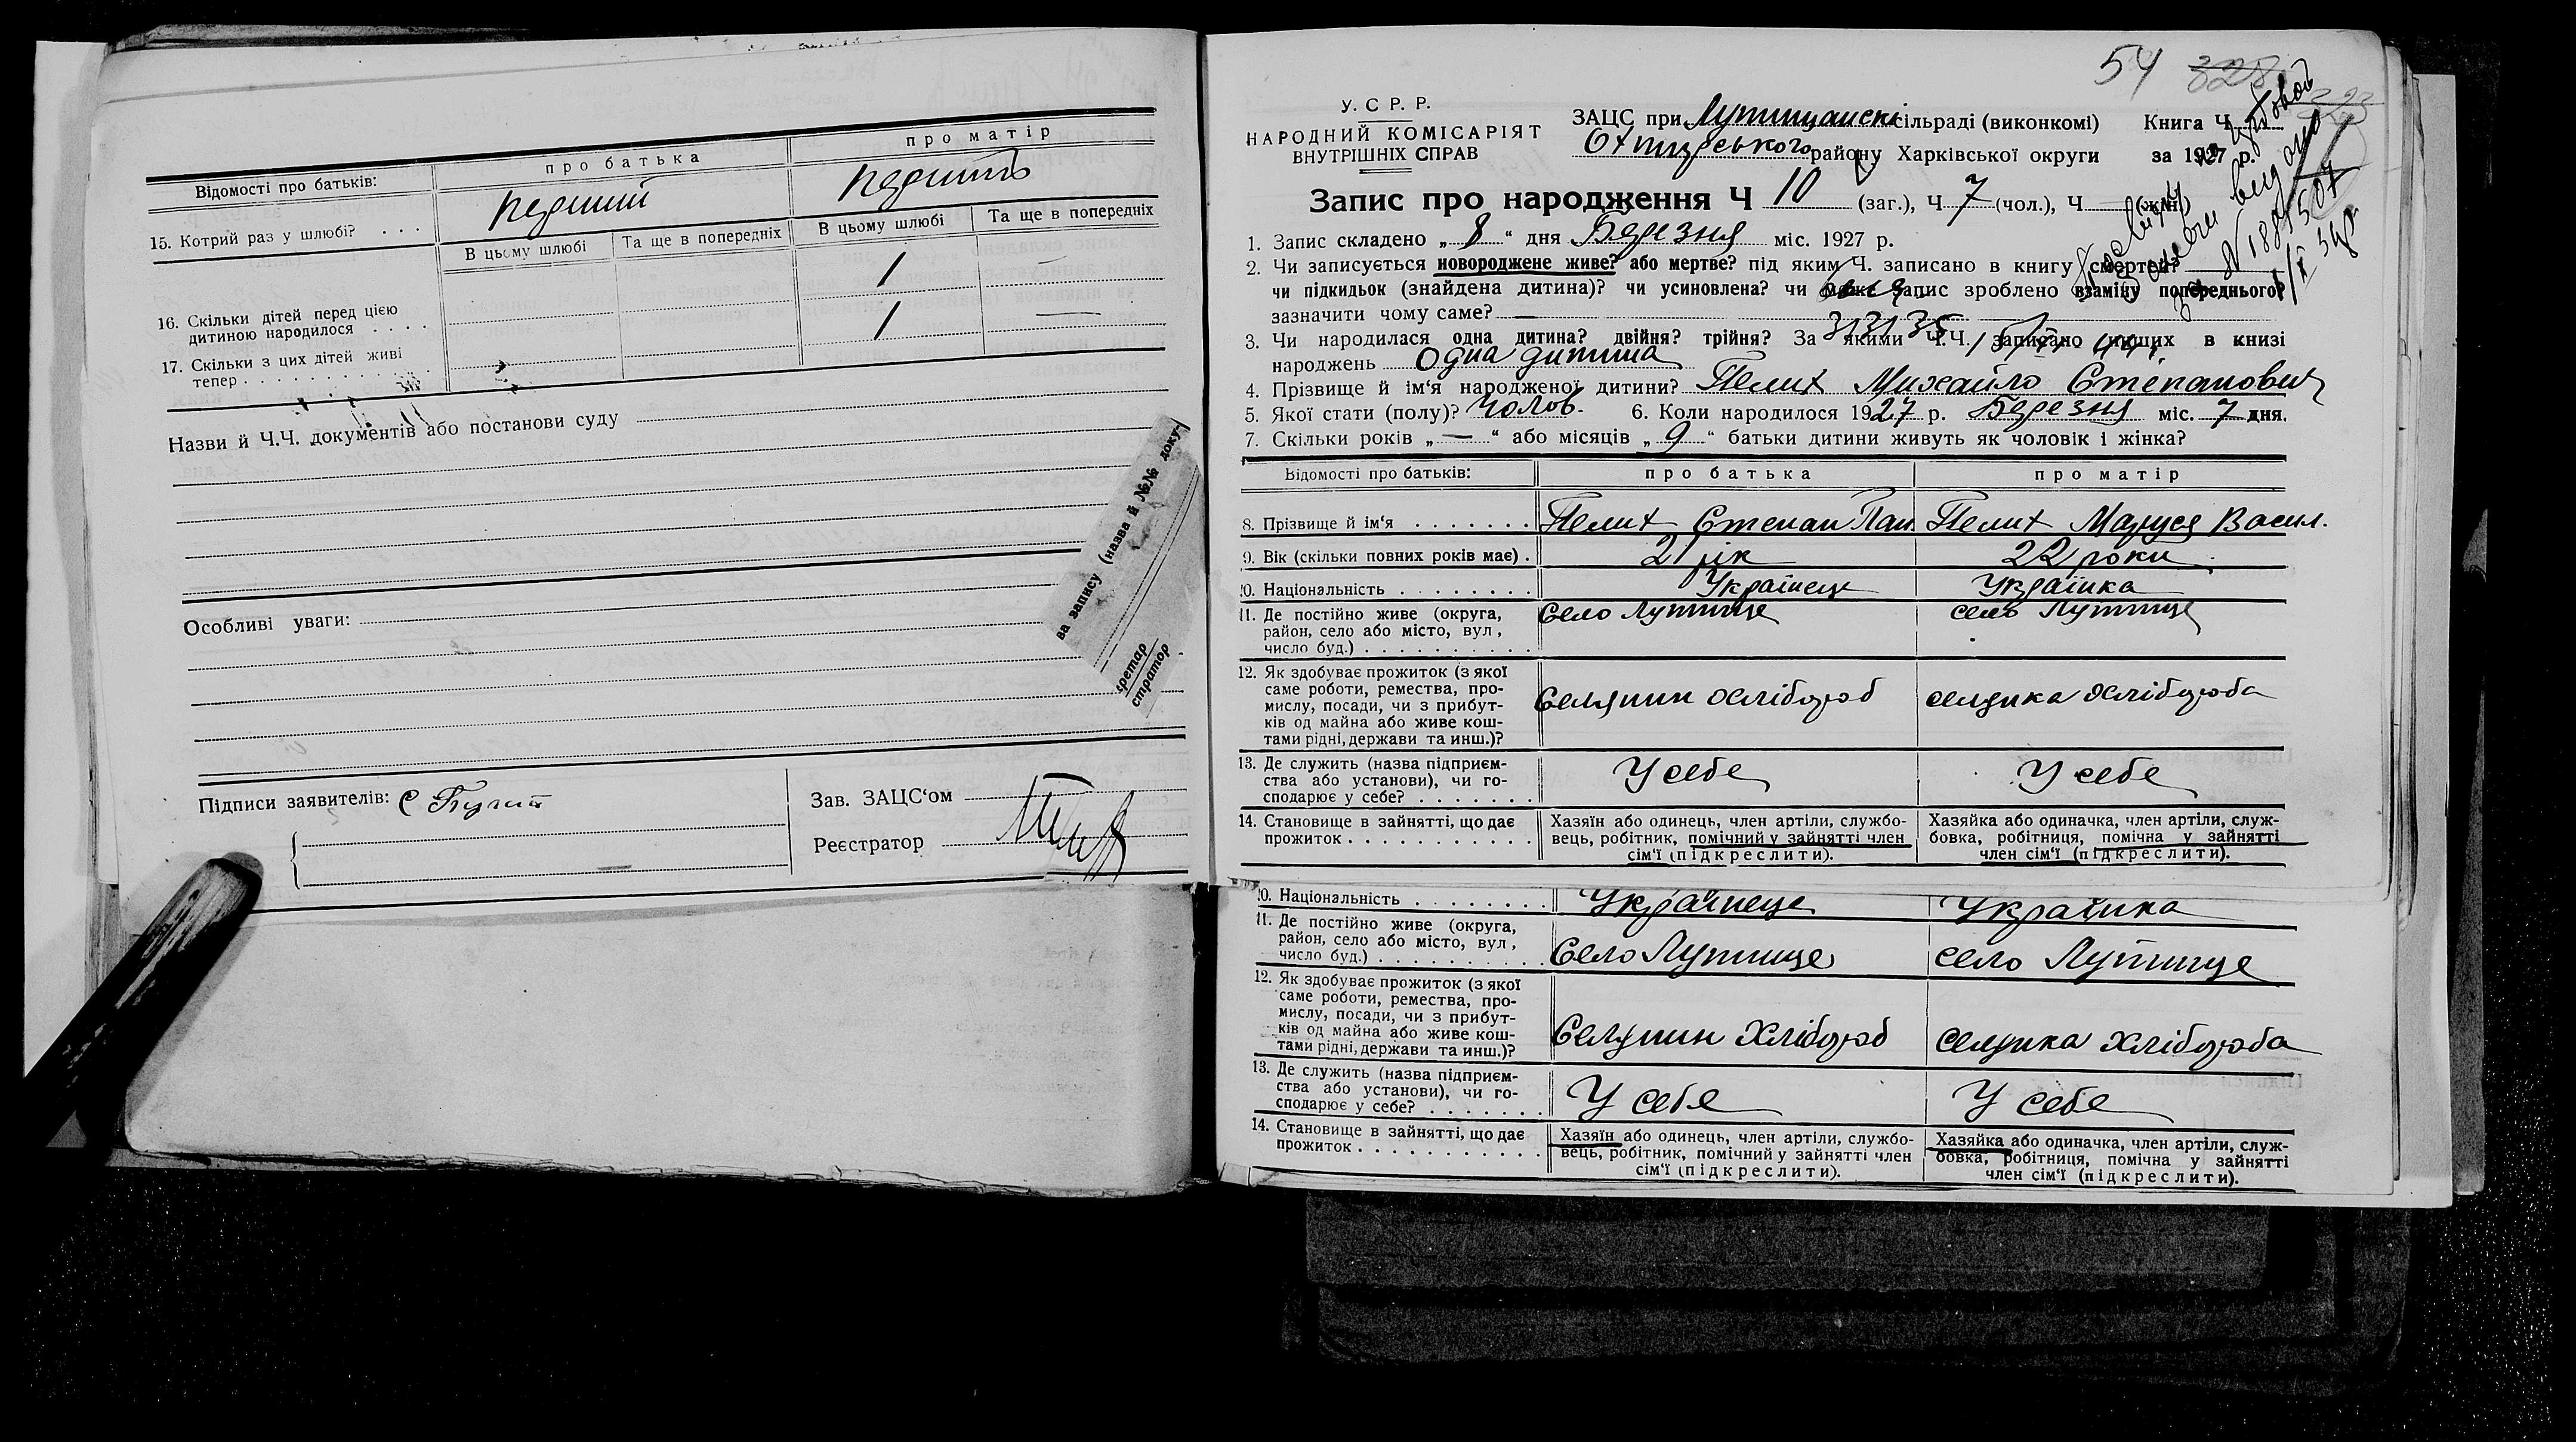 Відомості про батьків: про батька про матір
15. Котрий раз у шлюбі? . . . перший перший
В цьому шлюбі Та ще в попередніх В цьому шлюбі Та ще в попередніх
16. Скільки дітей перед цією
дитиною народилося . . . . 1 —
17. Скільки з цих дітей живі
тепер . . . . . . . . . . . . 1 —
Назви й Ч.Ч. документів або постанови суду
за запису (назва й №№ доку-
Особливі уваги:
Підписи заявителів:
Зав. ЗАЦС'ом
Реєстратор
54 328
У. С Р. Р.
НАРОДНИЙ КОМІСАРІЯТ
ВНУТРІШНІХ СПРАВ
ЗАЦС при Лутищанскі сільраді (виконкомі) Книга Ч
Охтирського району Харківської округи за 1927 р.
Запис про народження Ч 10 (заг.), Ч 7 (чол.), Ч — (жін.)
1. Запис складено „ 8 “ дня Березня міс. 1927 р.
2. Чи записується новороджене живе? або мертве? під яким Ч. записано в книгу смертей?
чи підкидьок (знайдена дитина)? чи усиновлена? чи може запис зроблено взаміну попереднього?
зазначити чому саме? —
3. Чи народилася одна дитина? двійня? трійня? За якими Ч.Ч. записано инших в книзі
народжень Одна дитина
4. Прізвище й ім'я народженої дитини? Пелих Михайло Степанович
5. Якої стати (полу)? Чолов. 6. Коли народилося 1927 р. Березня міс. 7 дня.
7. Скільки років „ — “ або місяців „ 9 “ батьки дитини живуть як чоловік і жінка?
Відомості про батьків: про батька про матір
8. Прізвище й ім'я . . . . . . . Пелих Степан Пан. Пелих Маруся Васил.
9. Вік (скільки повних років має) . 21 рік 22 роки
10. Національність . . . . . . . . Українець Українка
11. Де постійно живе (округа, Село Лутище село Лутище
район, село або місто, вул,
число буд.) . . . . . . . . . .
12. Як здобуває прожиток (з якої
саме роботи, ремества, про-
мислу, посади, чи з прибут- Селянин Хлібороб селянка Хлібороба
ків од майна або живе кош-
тами рідні, держави та инш.)?
13. Де служить (назва підприєм- У себе У себе
ства або установи), чи го-
сподарює у себе? . . . . . . .
14. Становище в зайнятті, що дає Хазяїн або одинець, член артіли, службо- Хазяйка або одиначка, член артіли, служ-
прожиток . . . . . . . . . . . вець, робітник, помічний у зайнятті член бовка, робітниця, помічна у зайнятті
сім'ї (підкреслити). член сім'ї (підкреслити).
10. Національність . . . . . . . . Українець Українка
11. Де постійно живе (округа,
район, село або місто, вул, Село Лутище село Лутище
число буд.) . . . . . . . . . .
12. Як здобуває прожиток (з якої
саме роботи, ремества, про-
мислу, посади, чи з прибут-
ків од майна або живе кош- Селянин Хлібороб селянка хлібороба
тами рідні, держави та инш.)?
13. Де служить (назва підприєм-
ства або установи), чи го- У себе У себе
сподарює у себе? . . . . . . .
14. Становище в зайнятті, що дає Хазяїн або одинець, член артіли, службо- Хазяйка або одиначка, член артіли, служ-
прожиток . . . . . . . . . . . вець, робітник, помічний у зайнятті член бовка, робітниця, помічна у зайнятті
сім'ї (підкреслити). член сім'ї (підкреслити).